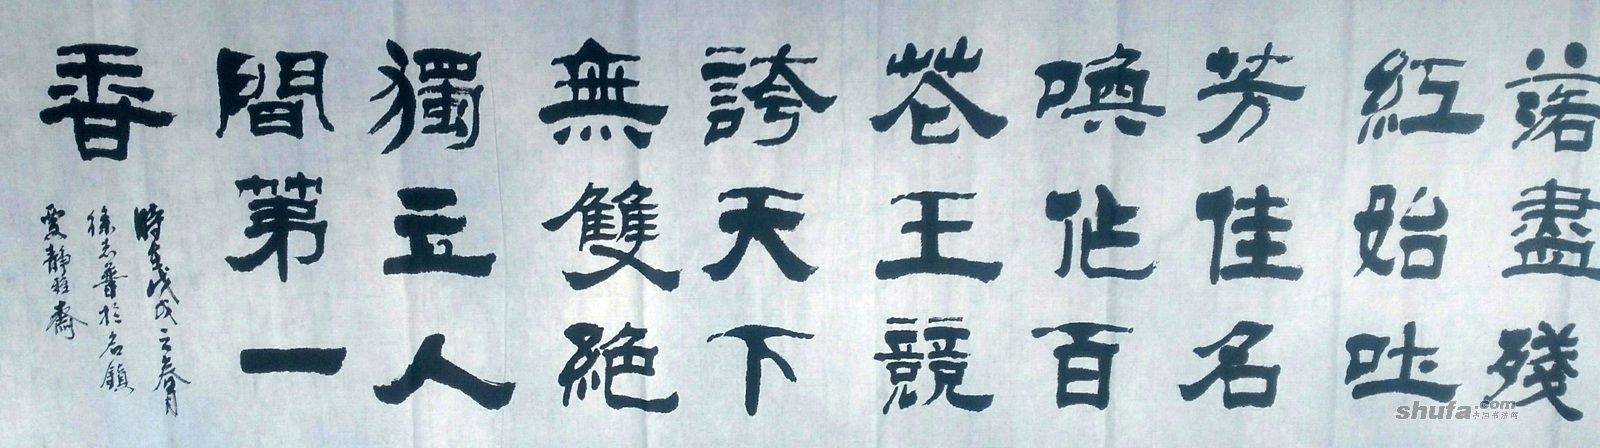 落盡殘
紅始吐
芳佳名
喚作百
花王競
誇天下
無雙絕
獨立人
間第一
香
時在戊戌之春月
徐志於名鎮
靜雅齋
shufa.com